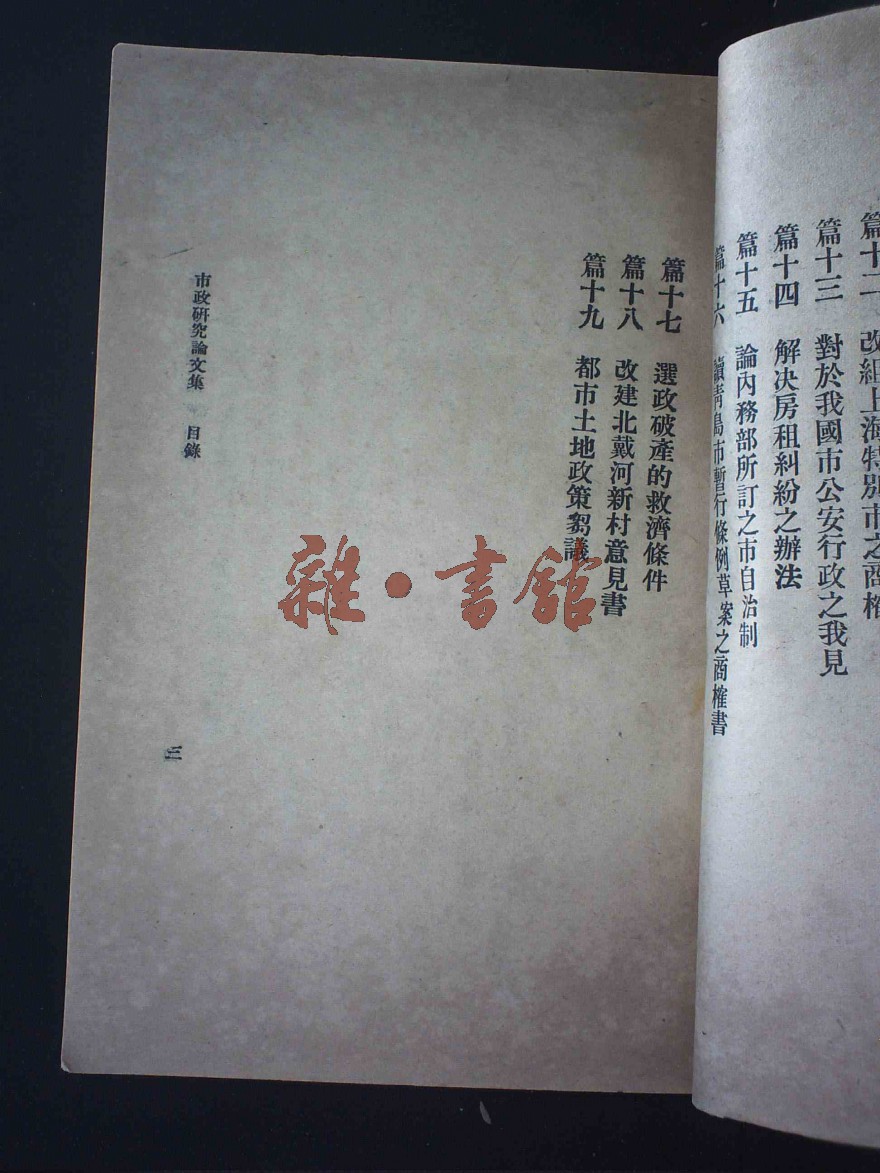 篇十二 改組上海特別市之商榷
篇十三 對於我國市公安行政之我見
篇十四 解決房租糾紛之辦法
篇十五 論內務部所訂之市自治制
篇十六 讀靑島市暫行條例草案之商榷書
篇十七 選政破產的救濟條件
篇十八 改建北戴河新村意見書
篇十九 都市土地政策芻議
市政硏究論文集 目錄
三
雜·書館